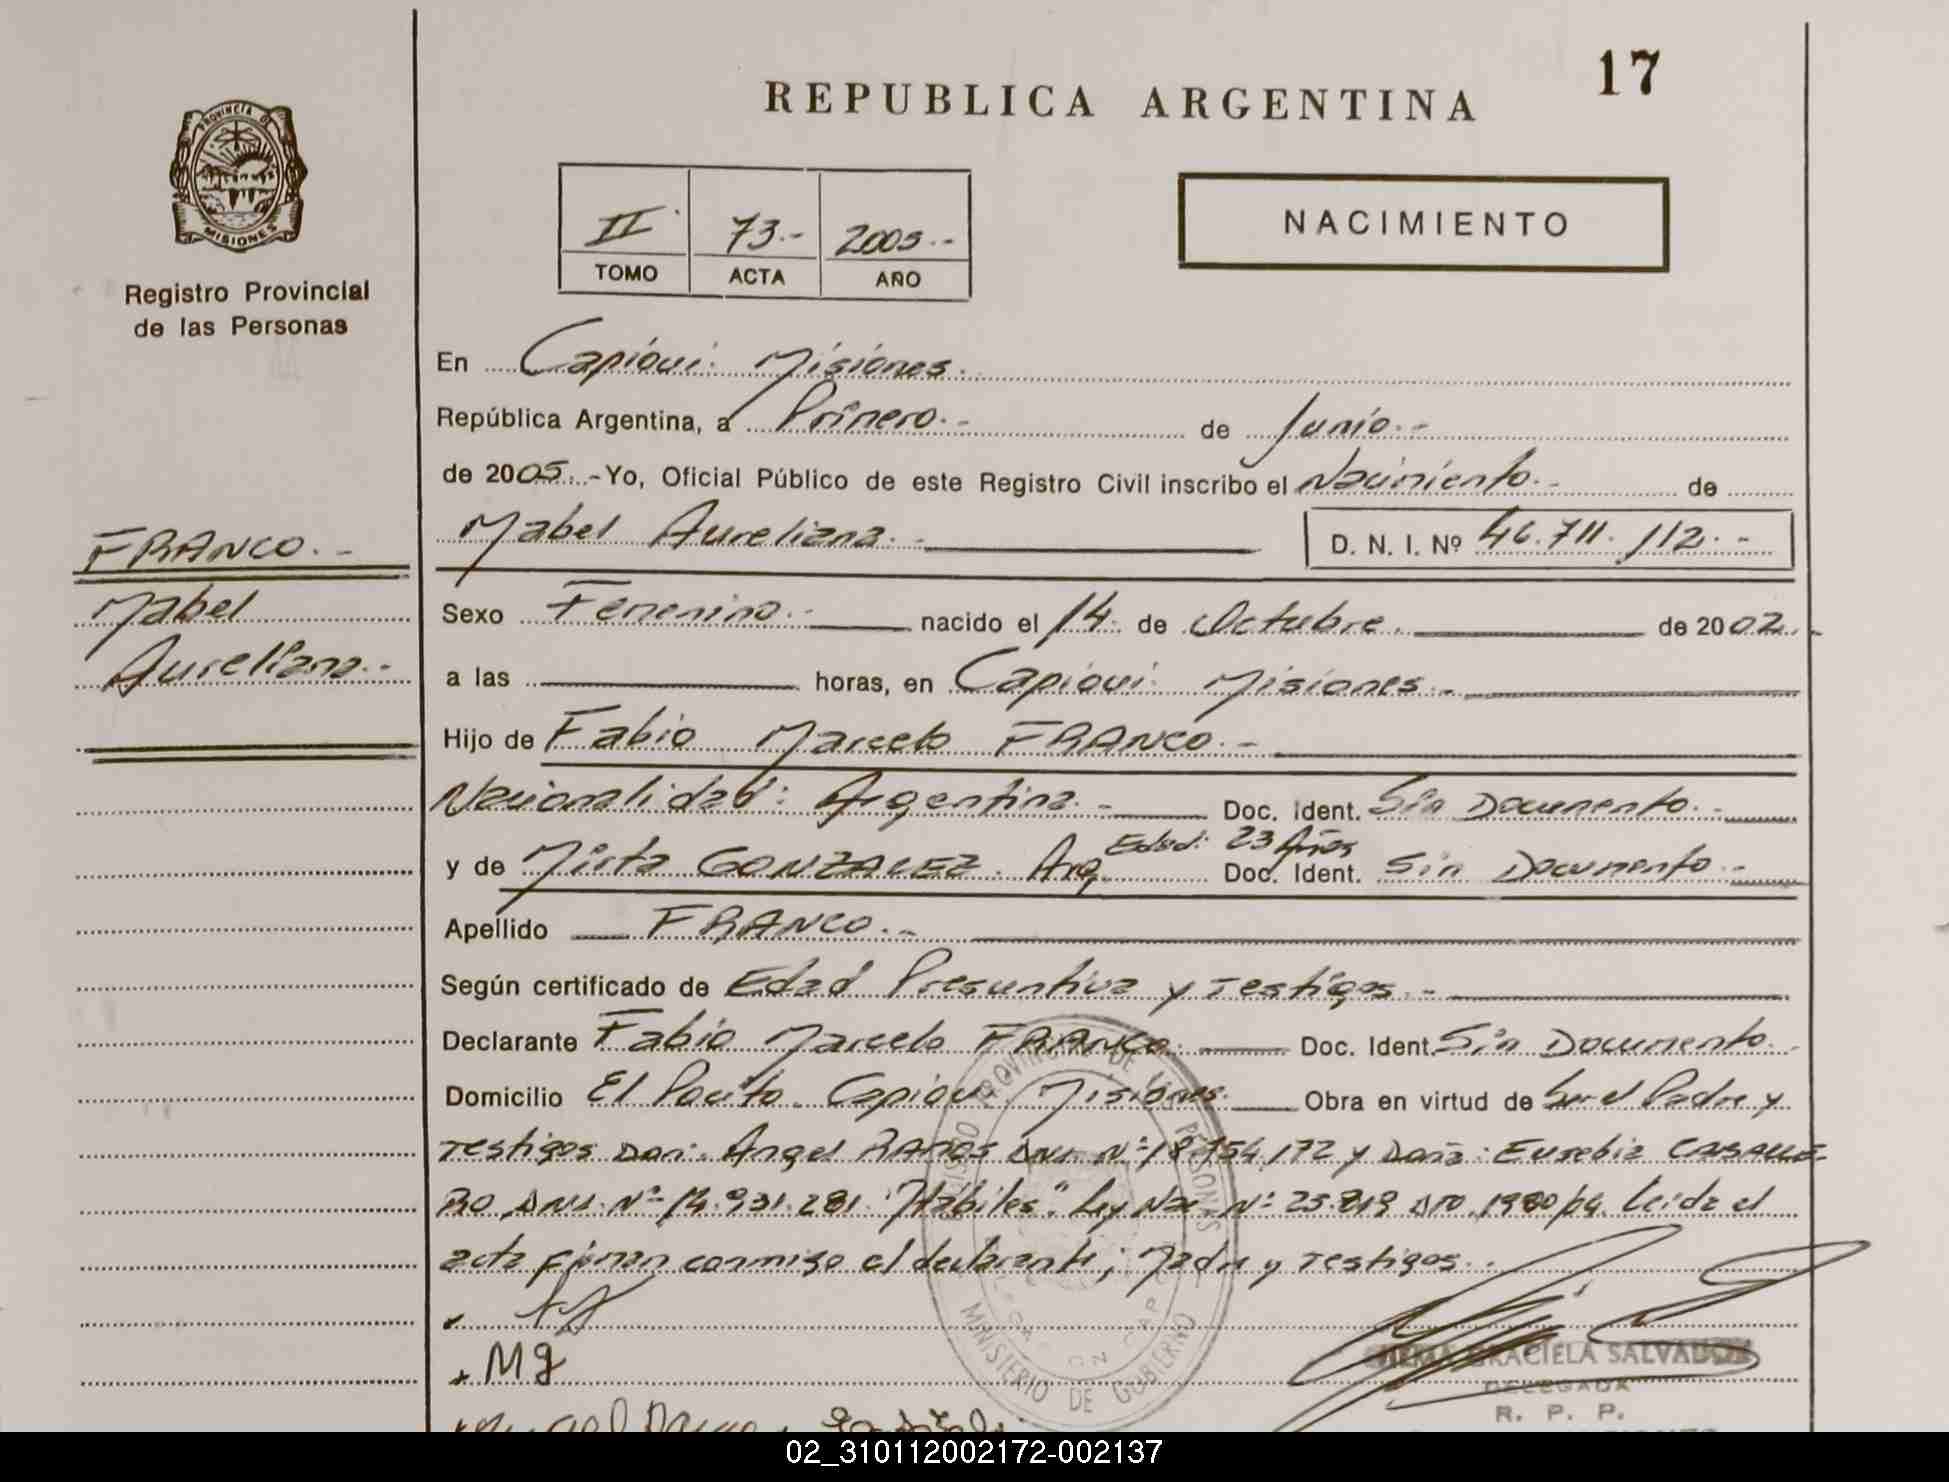 17
REPUBLICA ARGENTINA
PROVINCIA D
MISIONES
Registro Provincial
de las Personas
II 73.- 2005.-
TOMO ACTA AÑO
NACIMIENTO
En Capioui. Misiones.
República Argentina, a Primero.- de Junio.-
de 2005.- Yo, Oficial Público de este Registro Civil inscribo el Nacimiento.- de
Mabel Aureliana.- D. N. I. Nº 46.711.112.-
FRANCO.-
Mabel
Aureliana.-
Sexo Femenino.- nacido el 14 de Octubre. de 2002.
a las horas, en Capioui. Misiones.-
Hijo de Fabio Marcelo FRANCO.-
Nacionalidad: Argentina.- Doc. Ident. Sin Documento.-
Edad: 23 Años
y de Mirta GONZALEZ. Arg. Doc. Ident. Sin Documento.-
Apellido FRANCO.-
Según certificado de Edad Presuntiva y Testigos.-
Declarante Fabio Marcelo FRANCO. Doc. Ident. Sin Documento.
Domicilio El Pocito. Capioui Misiones. Obra en virtud de Ser el Padre y
Testigos Don: Angel RAMOS DNI. Nº 18.754.172 y Doña: Eusebia CABALLE-
RO DNI. Nº 14.931.281. "Hábiles". Ley Nac. Nº 25.819 DTO. 1980/04. Leída el
acta firman conmigo el declarante; Madre y Testigos.
Mg
GRACIELA SALVADOR
DELEGADA
R. P. P.
MINISTERIO DE GOBIERNO
02_310112002172-002137